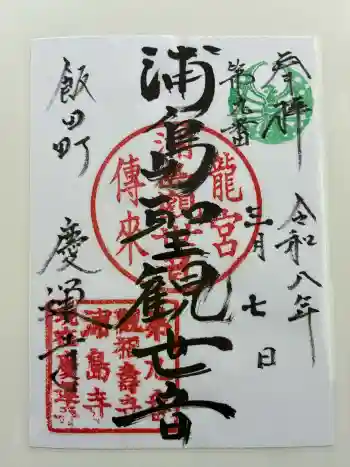 奉拝
第九番
令和八年
三月七日
浦島聖観世音
飯田町
慶運寺
龍宮
傳来
浦島寺